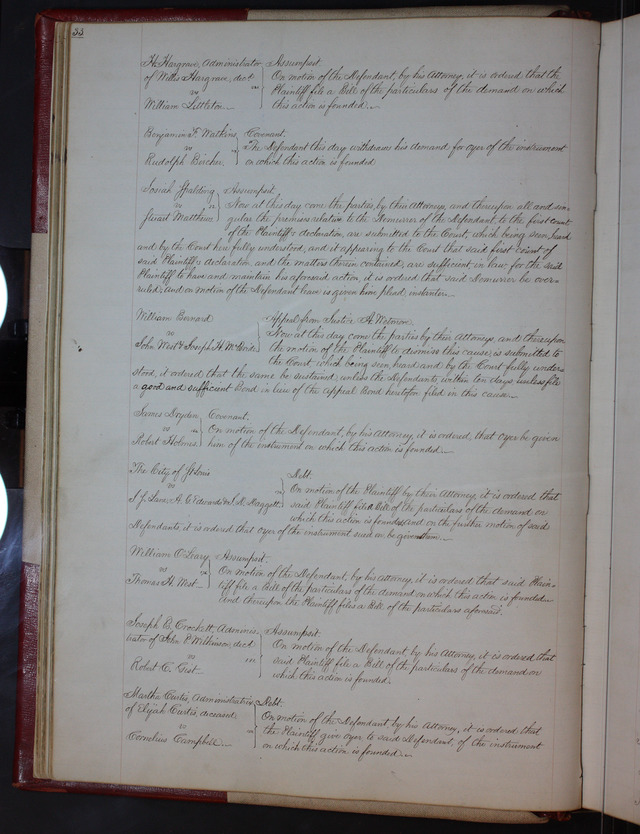 33
H. Hargrave, Administrator } Assumpsit.
of Willis Hargrave, dec'd } On motion of the Defendant, by his Attorney, it is ordered that the
vs } Plaintiff file a Bill of the particulars of the demand on which
William Littleton } this action is founded
Benjamin F. Watkins } Covenant.
vs } The Defendant this day withdraws his demand for oyer of the instrument
Rudolph Bircher } on which this action is founded
Josiah Spalding } Assumpsit
vs } Now at this day come the parties, by their Attorneys, and thereupon all and sin-
Stuart Matthews } gular the premises relative to the Demurrer of the Defendant, to the first count
of the Plaintiff's declaration, are submitted to the Court, which being seen, heard
and by the Court here fully understood, and it appearing to the Court that said first count of
said Plaintiff's declaration and the matters therein contained, are sufficient in law for the said
Plaintiff to have and maintain his aforesaid action, it is ordered that said Demurrer be over-
ruled; and on motion of the Defendant leave is given him plead, instanter.
William Bernard } Appeal from Justice
vs } Now at this day come the parties by their Attorneys, and thereupon
John West & Joseph H. } the motion of the Plaintiff to dismiss this cause, is submitted to
the Court, which being seen, heard and by the Court fully under-
stood, it ordered that the same be sustained, unless the Defendants within ten days unless file
a good and sufficient Bond in lieu of the Appeal Bond heretofore filed in this cause.
James Dryden } Covenant.
vs } On motion of the Defendant, by his Attorney, it is ordered, that oyer be given
Robert Holmes } him of the instrument on which this action is founded
The City of St Louis } Debt.
vs } On motion of the Plaintiff by their Attorney, it is ordered that
said Plaintiff file a Bill of the particulars of the demand on
which this action is founded, and on the further motion of said
Defendants, it is ordered that oyer of the instrument sued on be given them
William O'Leary } Assumpsit.
vs } On motion of the Defendant, by his Attorney, it is ordered that said Plain-
Thomas H. West } tiff file a Bill of the particulars of the demand on which this action is founded
And thereupon the Plaintiff files a Bill of the particulars aforesaid.
Joseph E. Crockett, Adminis- } Assumpsit.
trator of John P. Wilkinson, dec'd } On motion of the Defendant by his Attorney, it is ordered that
vs } said Plaintiff file a Bill of the particulars of the demand on
Robert C. Gist } which this action is founded.
Martha Curtis, Administratrix } Debt.
of Elijah Curtis, deceased } On motion of the Defendant by his Attorney, it is ordered that
vs } the Plaintiff give oyer to said Defendant, of the instrument
Cornelius Campbell } on which this action is founded